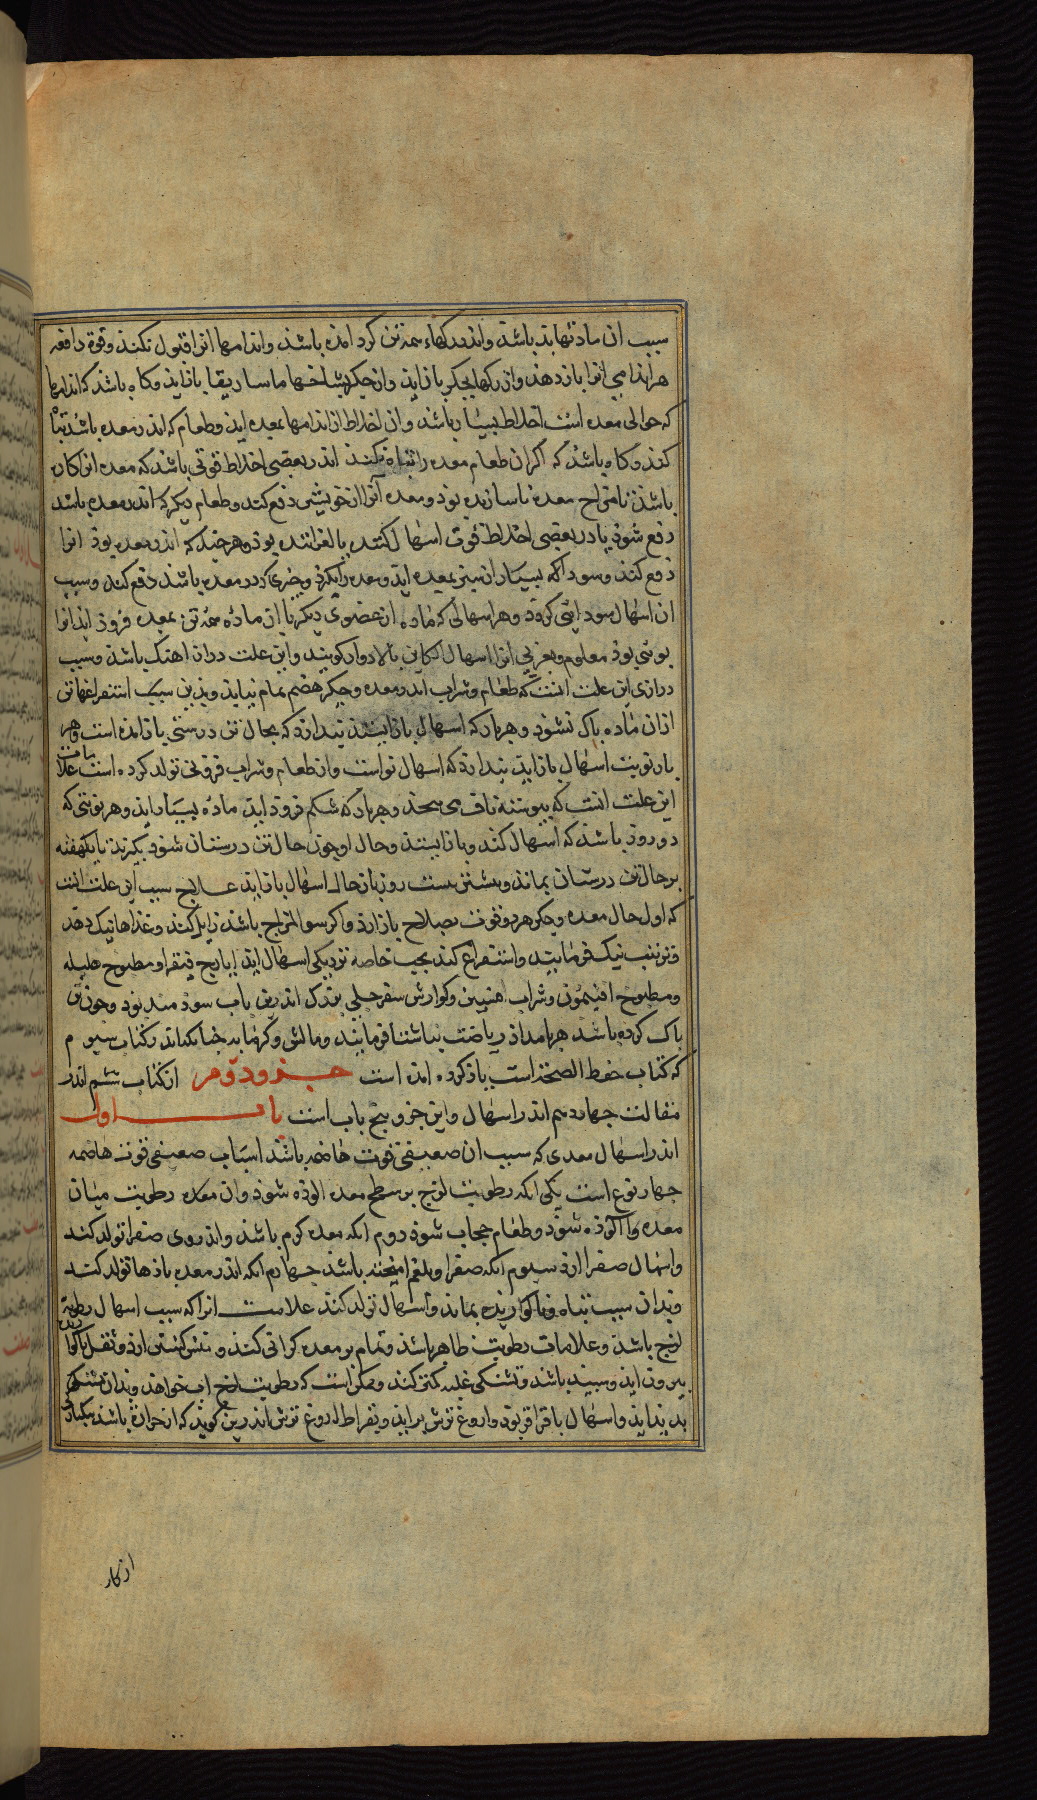 سبب ان مادتها بد باشذ و اندر رکهاء همه تن کرد امذه باشذ و اندامها انرا قبول نکند و قوة دافعه
هر اندامی انرا باز دهذ و از رکها بجکر باز ایذ و از جکر بشاخها ماساریقا باز ایذ و کاه باشذ که اندامها
که حوالی معده است اخلاط بسیار باشذ و ان اخلاط از اندامها بمعده ایذ و طعام که اندر معده باشد تباه
کند و کاه باشذ که اکر ان طعام معده را تباه نکند اندر بعضی اخلاط قوتی باشذ که معده انرا کاره
باشذ تا مزاج معده ناسازنده بوذ و معده آنرا از خویشتن دفع کند و طعام دیکر که اندر معده باشد
دفع شوذ یا در بعضی اخلاط قوت اسهال کننده یا لغزاننده بوذ و هر جند که اندر معده بوذ انرا
دفع کند و سودا که بسیار از سپرز بمعده ایذ و معده را بکزد و جیزی که در معده باشذ دفع کند و سبب
ان اسهال سودایی کردد و هر اسهالی که ماده از عضوی دیکر یا از ماده همه تن بمعده فروذ ایذ انرا
نوبتی بوذ معلوم و بعربی انرا اسهال الکاین بالادوار کویند و این علت دراز اهنک باشذ و سبب
درازی این علت انست که طعام و شراب اندر معده و جکر هضم تمام نیابذ و بذین سبب استفراغها تن
از ان ماده باک نشوذ و هربار که اسهال باز ایستذ بندارذ که بحال تن درستی باز امذه است و هر
بار نوبت اسهال باز ایذ بندارذ که اسهال نو است و از طعام و شراب فزونی تولد کرده است علامات
این علت انست که بیوسته ناف می بیجذ و هربار که شکم فروذ ایذ ماده بسیار ایذ و هر نوبتی که
دو روز باشذ که اسهال کند و باز ایستذ و حال او جون حال تن درستان شوذ بکرند یا یکهفته
بر حال تن درستان بماند و بیشتر بیست روز باز حال اسهال باز ایذ علاج سبب این علت انست
که اول حال معده و جکر هر دو قوت بصلاح باز ارذ و اکر سوالمزاج باشذ زایل کند و غذاها نیک دهد
و ترتیب نیک فرمایند و استفراغ کند بحب خاصه نزدیکی اسهال ایذ ایارج فیقرا و مطبوخ هلیله
و مطبوخ افتیمون و شراب افسنتین و کوارش سفرجلی بزرک اندرین باب سوذ مند بوذ و جون تن
باک کرده باشذ هر بامداذ ریاضت بناشتا فرمایند و مالش و کرمابه جنانکه اندر کتاب سیوم
که کتاب حفظ الصحة است یاذ کرده امذه است جزو دوم از کتاب ششم اندر
مقالت جهاردهم اندر اسهال و این جزو بنج باب است باب اول
اندر اسهال معدی که سبب ان ضعیفی قوت هاضمه باشذ اسباب ضعیفی قوت هاضمه
جهار نوع است یکی انکه رطوبت لزج بر سطح معده الوذه شوذ و ان معده رطوبت میان
معده و ما آلوذه شوذ و طعام حجاب شوذ دوم انکه معده کرم باشذ و اندر وی صفرا تولد کند
و اسهال صفرا ارذ سیوم انکه صفرا و بلغم امیخته باشذ جهارم انکه اندر معده باذها تولد کند
و بدان سبب تباه و ناکوارنده بماند و اسهال تولد کند علامت انرا که سبب اسهال رطوبت
لزج باشذ و علامات رطوبت ظاهر باشذ و تمام بر معده کرانی کند و منش کشتن ارذ و ثفل ناکوارنده
بیرون ایذ و سبید باشذ و تشنکی غلبه کمتر کند و ممکن است که رطوبت لزج اب خواهذ و بدان تشنکی
بدید ایذ و اسهال با قراقر بوذ و اروغ ترش برایذ و بقراط اروغ ترش اندرین کویذ که از حرارة باشد یکبارکی
از کار